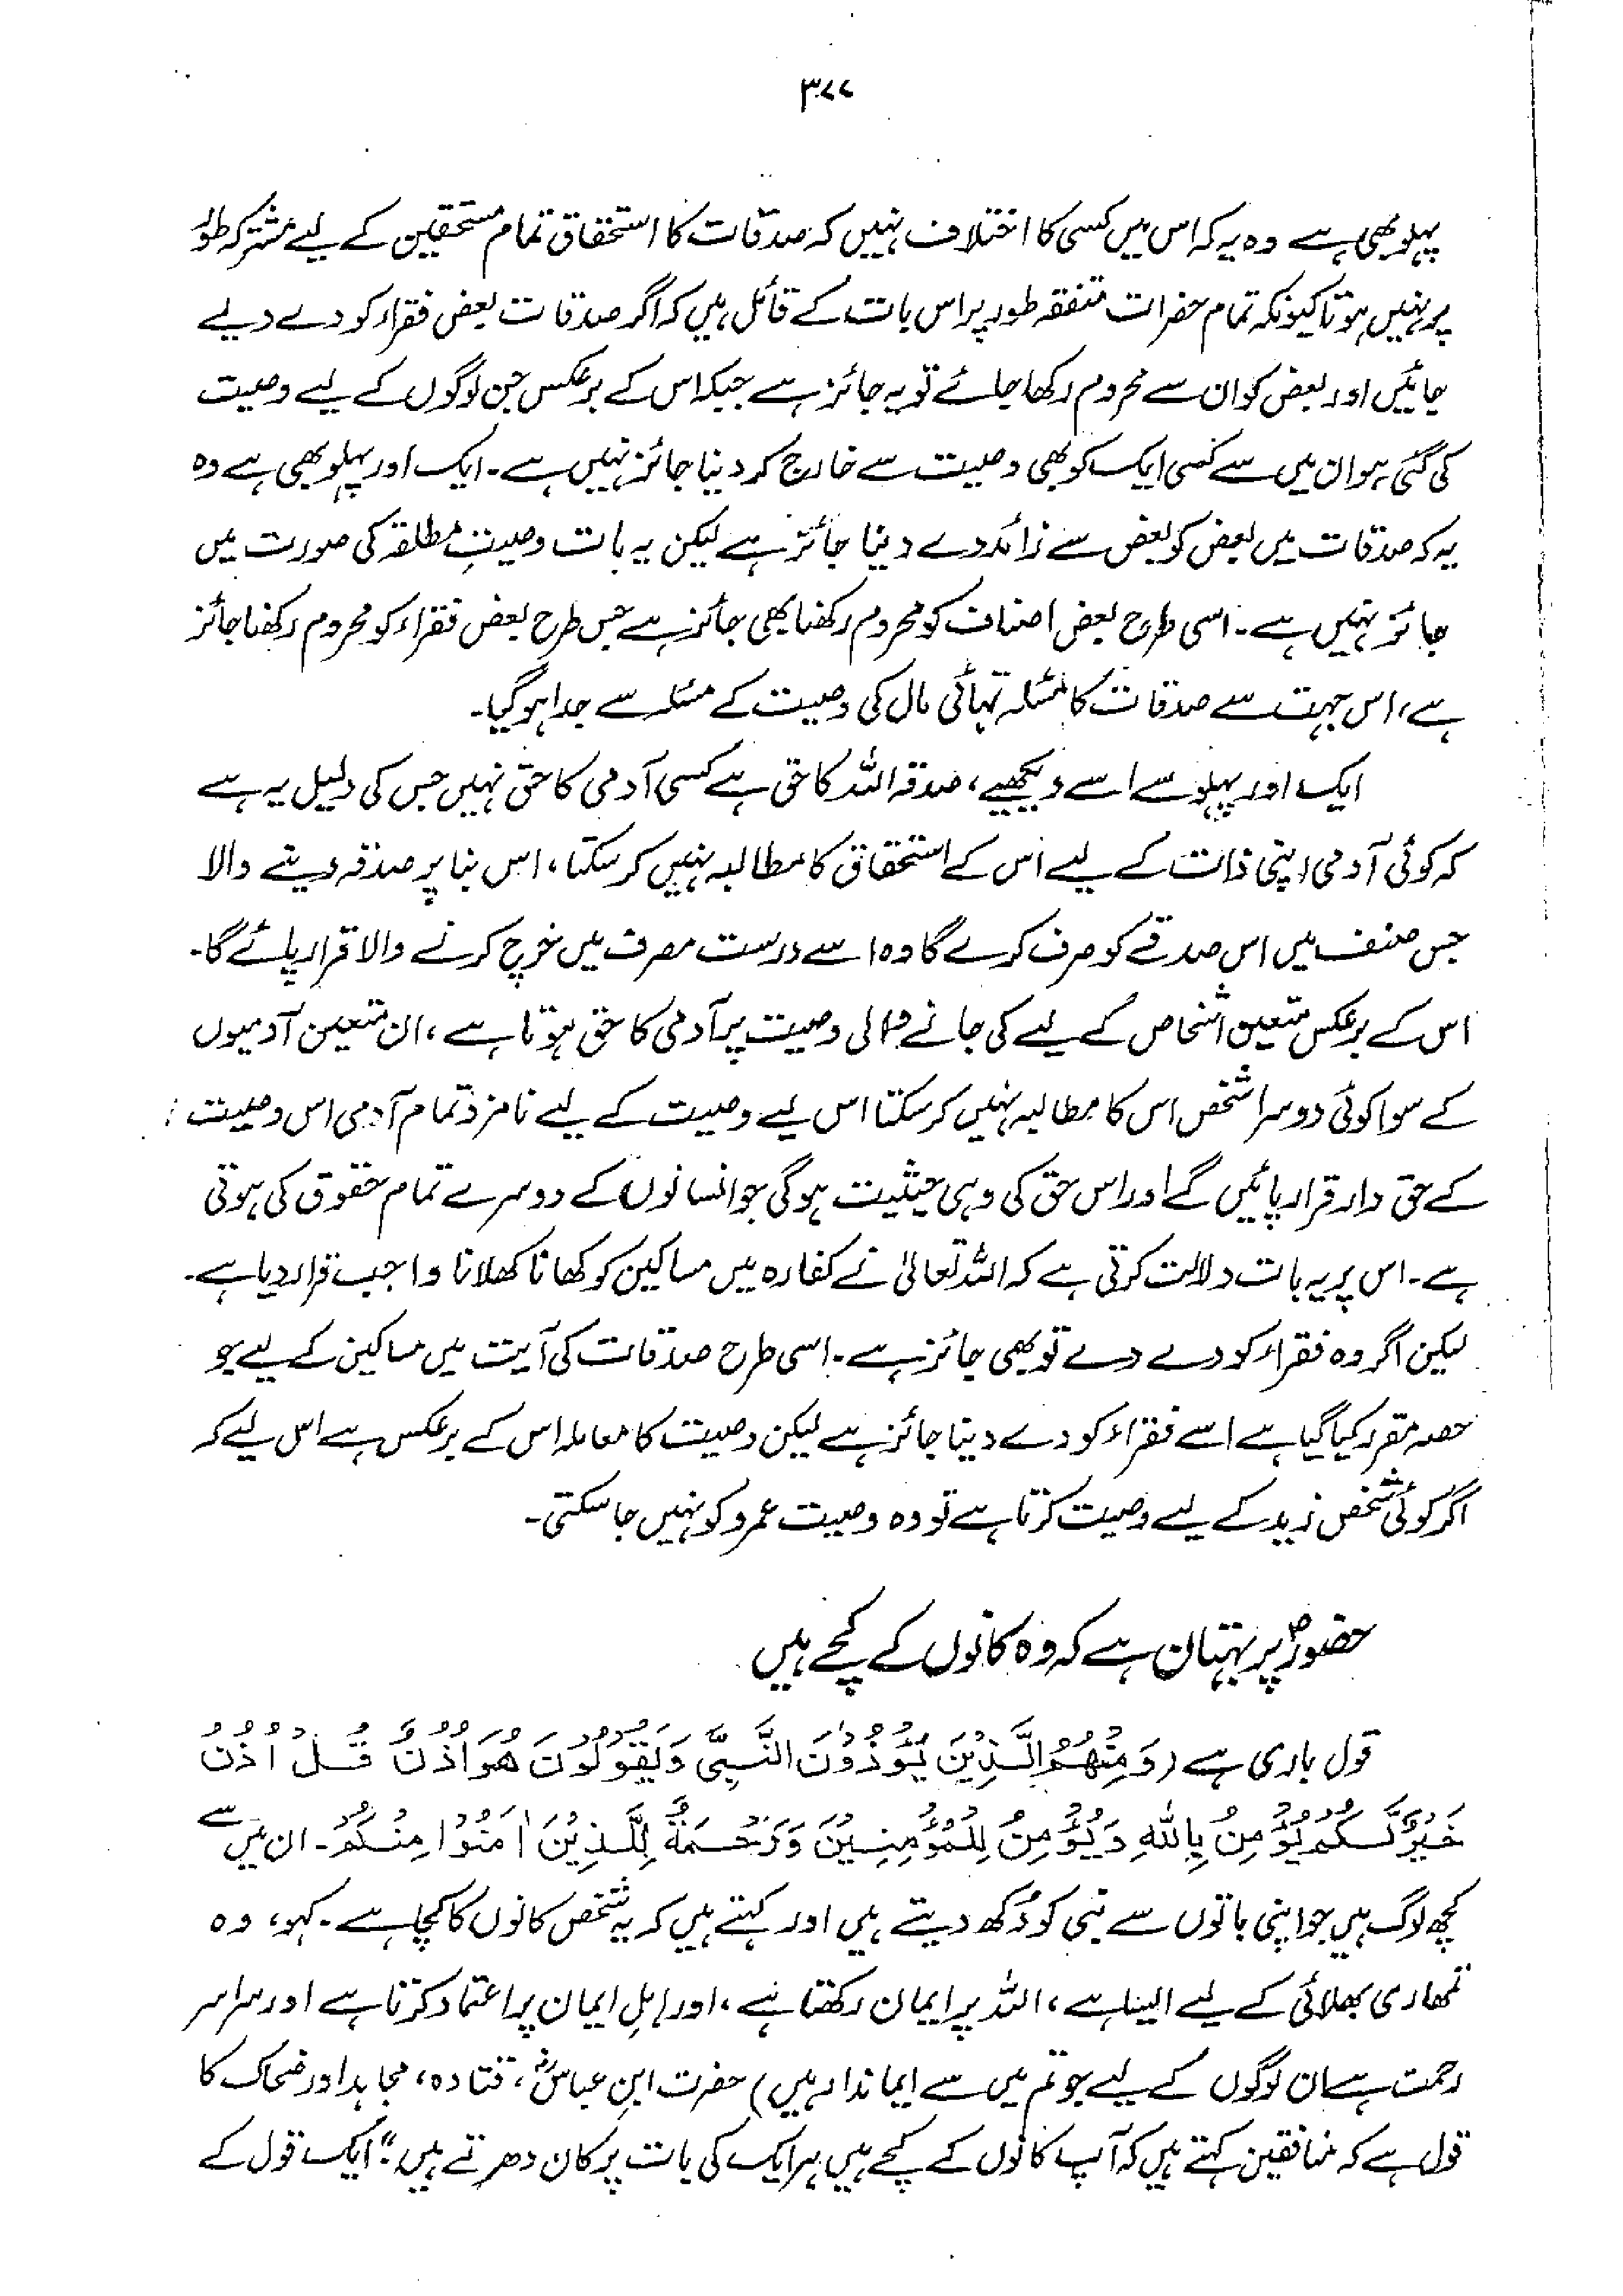 ۳۷۷
پہلو بھی ہے وہ یہ کہ اس میں کسی کا اختلاف نہیں کہ صدقات کا استحقاق تمام مستحقین کے لیے مشترکہ طور
پر نہیں ہوتا کیونکہ تمام حضرات متفقہ طور پر اس بات کے قائل ہیں کہ اگر صدقات بعض فقراء کو دے دیے
جائیں اور بعض کو ان سے محروم رکھا جائے تو یہ جائز ہے جبکہ اس کے برعکس جن لوگوں کے لیے وصیت
کی گئی ہو ان میں سے کسی ایک کو بھی وصیت سے خارج کر دینا جائز نہیں ہے۔ ایک اور پہلو بھی ہے وہ
یہ کہ صدقات میں بعض کو بعض سے زائد دے دینا جائز ہے لیکن یہ بات وصیتِ مطلقہ کی صورت میں
جائز نہیں ہے۔ اسی طرح بعض اصناف کو محروم رکھنا بھی جائز ہے جس طرح بعض فقراء کو محروم رکھنا جائز
ہے، اس جہت سے صدقات کا مسئلہ تہائی مال کی وصیت کے مسئلہ سے جدا ہو گیا۔
ایک اور پہلو سے اسے دیکھیے، صدقہ اللہ کا حق ہے کسی آدمی کا حق نہیں جس کی دلیل یہ ہے
کہ کوئی آدمی اپنی ذات کے لیے اس کے استحقاق کا مطالبہ نہیں کر سکتا، اس بنا پر صدقہ دینے والا
جس صنف میں اس صدقے کو صرف کرے گا وہ اسے درست مصرف میں خرچ کرنے والا قرار پائے گا۔
اس کے برعکس متعین اشخاص کے لیے کی جانے والی وصیت پر آدمی کا حق ہوتا ہے، ان متعین آدمیوں
کے سوا کوئی دوسرا شخص اس کا مطالبہ نہیں کر سکتا اس لیے وصیت کے لیے نامزد تمام آدمی اس وصیت
کے حق دار قرار پائیں گے اور اس حق کی وہی حیثیت ہوگی جو انسانوں کے دوسرے تمام حقوق کی ہوتی
ہے۔ اس پر یہ بات دلالت کرتی ہے کہ اللہ تعالیٰ نے کفارہ میں مساکین کو کھانا کھلانا واجب قرار دیا ہے۔
لیکن اگر وہ فقراء کو دے دے تو بھی جائز ہے۔ اسی طرح صدقات کی آیت میں مساکین کے لیے جو
حصہ مقرر کیا گیا ہے اسے فقراء کو دے دینا جائز ہے لیکن وصیت کا معاملہ اس کے برعکس ہے اس لیے کہ
اگر کوئی شخص زید کے لیے وصیت کرتا ہے تو وہ وصیت عمرو کو نہیں جا سکتی۔
حضورؐ پر بہتان ہے کہ وہ کانوں کے کچے ہیں
قول باری ہے (وَمِنْهُمُ الَّذِيْنَ يُؤْذُوْنَ النَّبِيَّ وَيَقُوْلُوْنَ هُوَ اُذُنٌ قُلْ اُذُنُ
خَيْرٍ لَّكُمْ يُؤْمِنُ بِاللّٰهِ وَيُؤْمِنُ لِلْمُؤْمِنِيْنَ وَرَحْمَةٌ لِّلَّذِيْنَ اٰمَنُوْا مِنْكُمْ۔ ان میں سے
کچھ لوگ ہیں جو اپنی باتوں سے نبی کو دُکھ دیتے ہیں اور کہتے ہیں کہ یہ شخص کانوں کا کچا ہے۔ کہو، وہ
تمھاری بھلائی کے لیے ایسا ہے، اللہ پر ایمان رکھتا ہے، اور اہلِ ایمان پر اعتماد کرتا ہے اور سراسر
رحمت ہے ان لوگوں کے لیے جو تم میں سے ایماندار ہیں) حضرت ابنِ عباسؓ، قتادہ، مجاہد اور ضحاک کا
قول ہے کہ منافقین کہتے ہیں کہ آپ کانوں کے کچے ہیں ہر ایک کی بات پر کان دھرتے ہیں" ایک قول کے